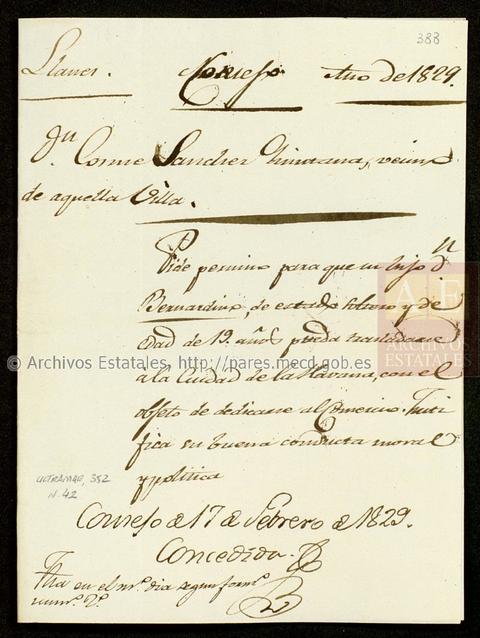 388
Llanes. Consejo Año de 1829.
Dn. Cosme Sanchez Quintana, vecino
de aquella Villa.
Pide permiso para que su hijo Dn
Bernardino, de estado soltero y de
edad de 19 años pueda trasladarse
a la Ciudad de la Havana, con el
objeto de dedicarse al Comercio. Justi
fica su buena conducta moral
y politica
ULTRAMAR, 352
N. 42
Consejo de 17 de Febrero de 1829.
Concedida.
fha en el mo. dia segun form.o
A E
ARCHIVOS
ESTATALES
© Archivos Estatales, http://pares.mecd.gob.es